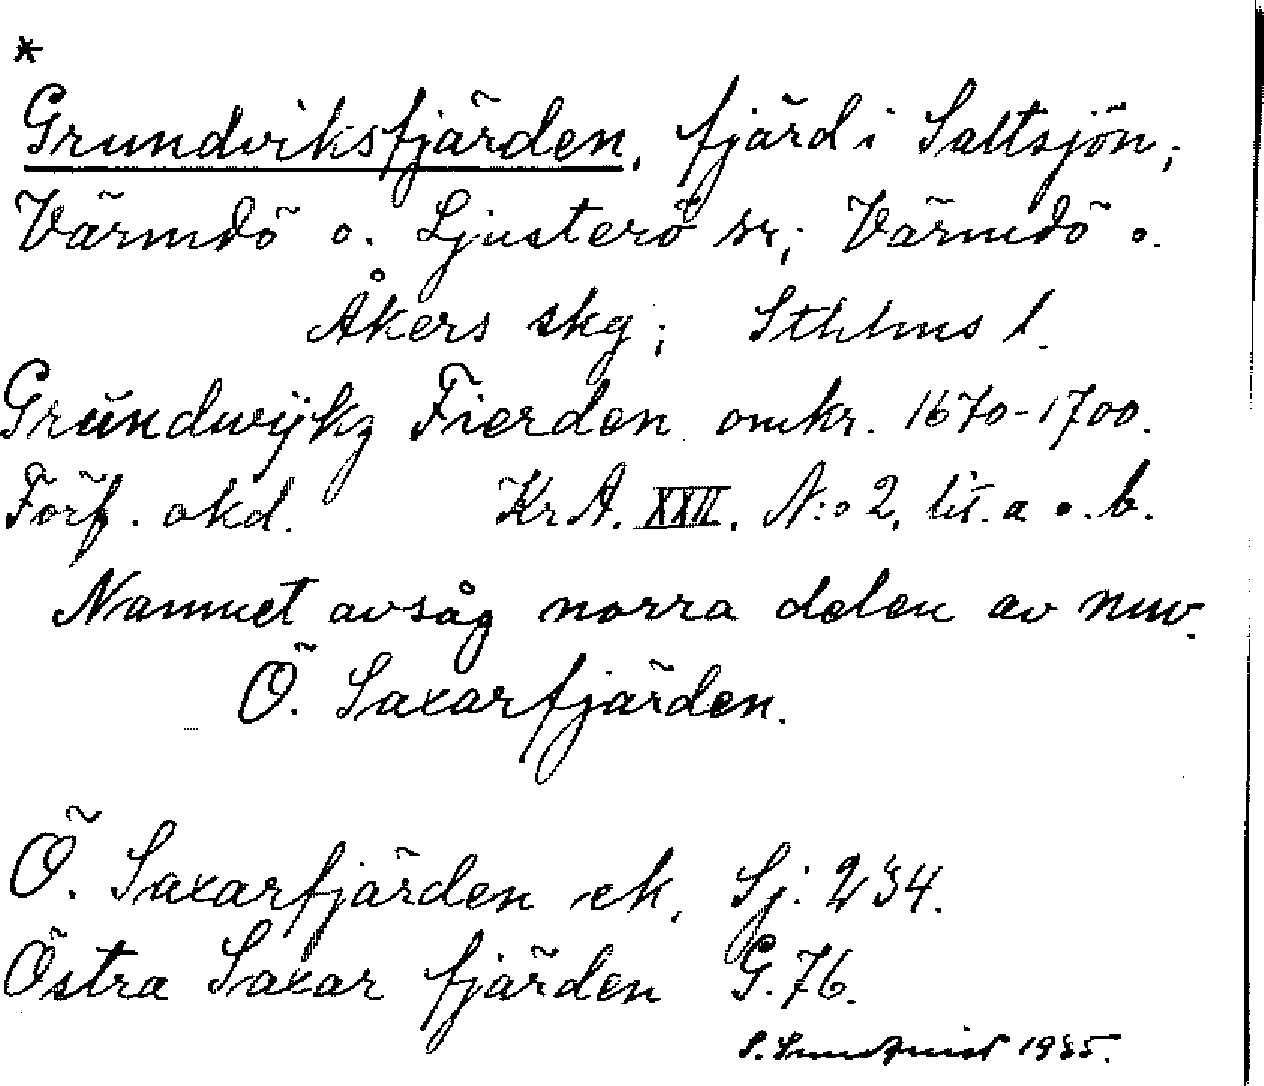 *
Grundviksfjärden, fjärd i Saltsjön;
Värmdö o. Ljusterö sr; Värmdö o.
Åkers skg; Sthlms l.
Grŭndwÿkz Fierden omkr. 1670-1700.
Förf. okd. Kr A. XXII. N:o 2, lit. a o. b.
Namnet avsåg norra delen av nuv.
Ö. Saxarfjärden.
Ö. Saxarfjärden ek. Sj. 234.
Östra Saxar fjärden G. 76.
S. Sundqvist 1935.